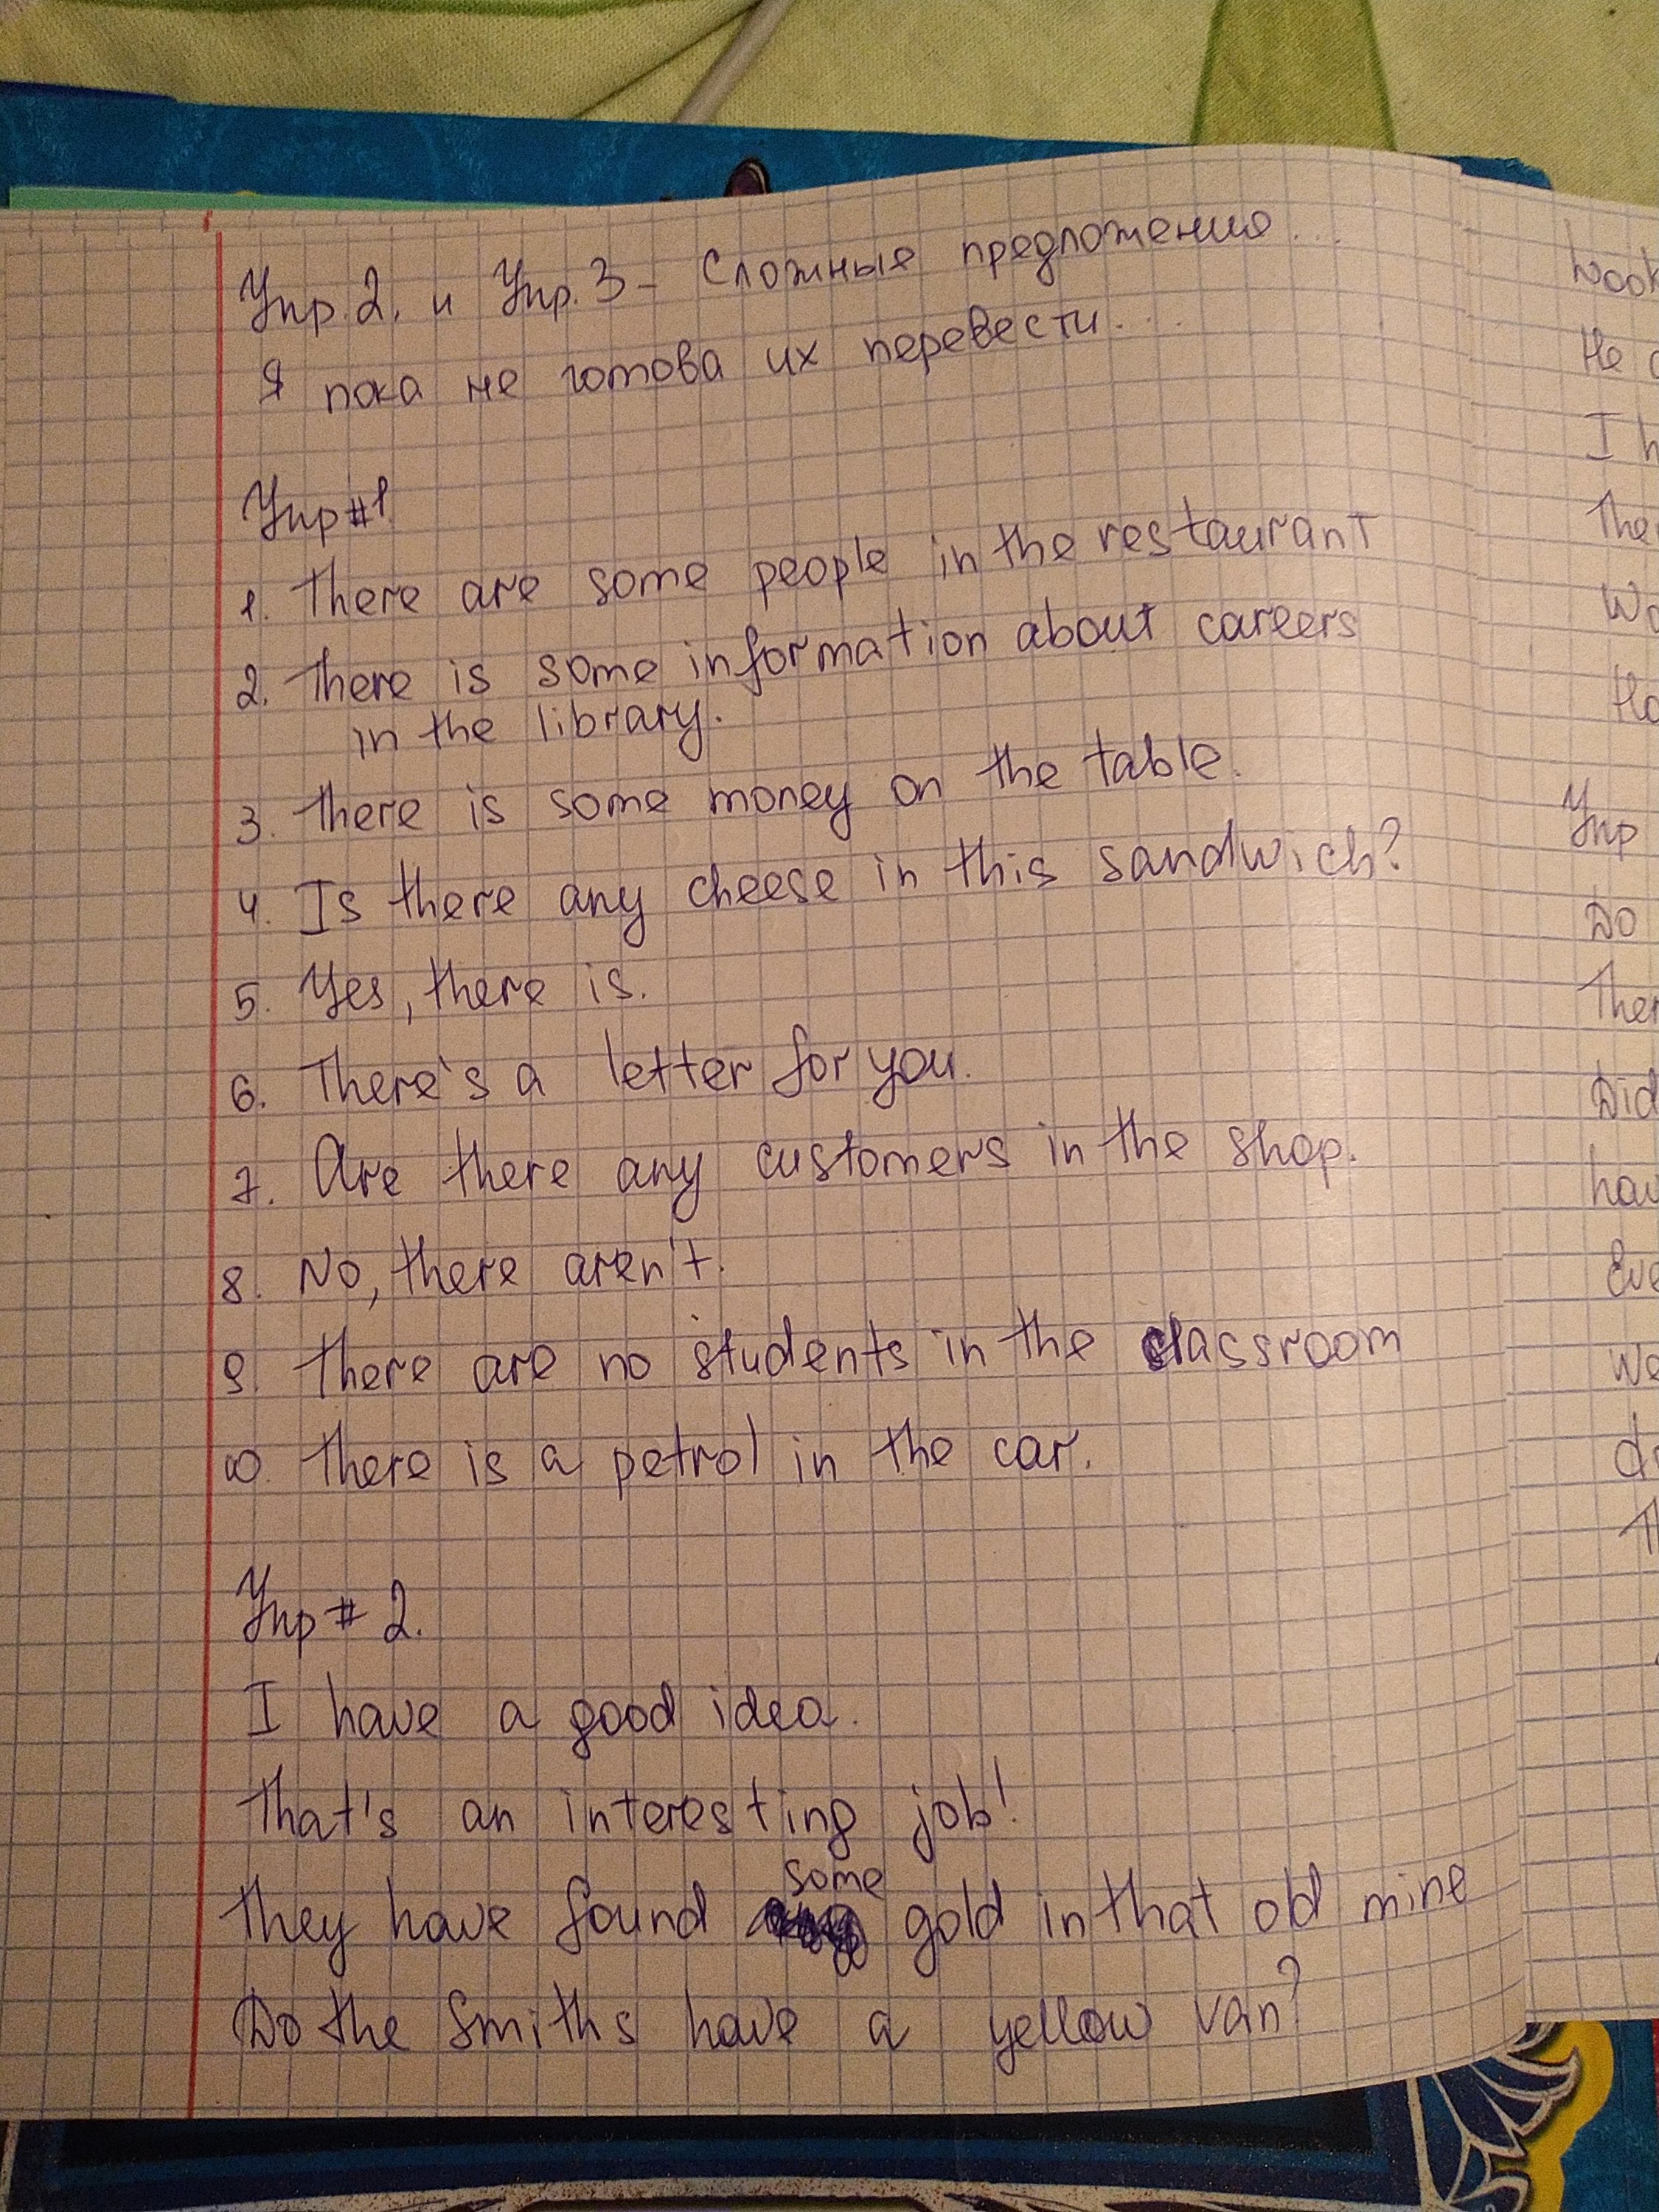 Упр. 2. и Упр. 3 - Сложные предложения...
Я пока не готова их перевести....
Упр #1
1. There are some people in the restaurant
2. There is some information about careers
in the library.
3. There is some money on the table.
4. Is there any cheese in this sandwich?
5. Yes, there is.
6. There's a letter for you.
7. Are there any customers in the shop.
8. No, there aren't.
9. There are no students in the classroom
10. There is a petrol in the car.
Упр # 2.
I have a good idea.
That's an interesting job!
some
They have found gold in that old mine
Do the Smiths have a yellow van?
He
I
Упр
Do
Did